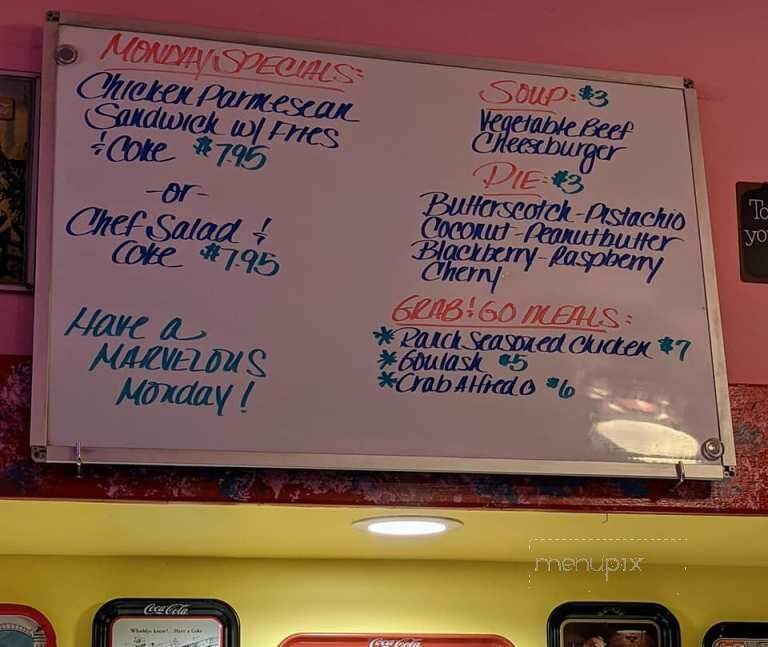 MONDAY SPECIALS:
Chicken Parmesean
Sandwich w/ Fries
& Coke $7.95
-or-
Chef Salad &
Coke $7.95
Have a
MARVELOUS
Monday!
SOUP: $3
Vegetable Beef
Cheeseburger
PIE: $3
Butterscotch - Pistachio
Coconut - Peanutbutter
Blackberry - Raspberry
Cherry
GRAB & GO MEALS:
* Ranch Seasoned Chicken $7
* Goulash $5
* Crab Alfredo $6
menupix
Coca-Cola
Coca-Cola